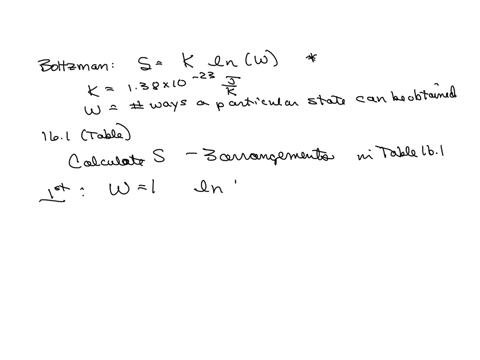 Boltzman: S = K ln (W) *
K = 1.38 x 10⁻²³ J/K
W = # ways a particular state can be obtained
16.1 (Table)
Calculate S - 3 arrangements in Table 16.1
1st: W = 1 ln '